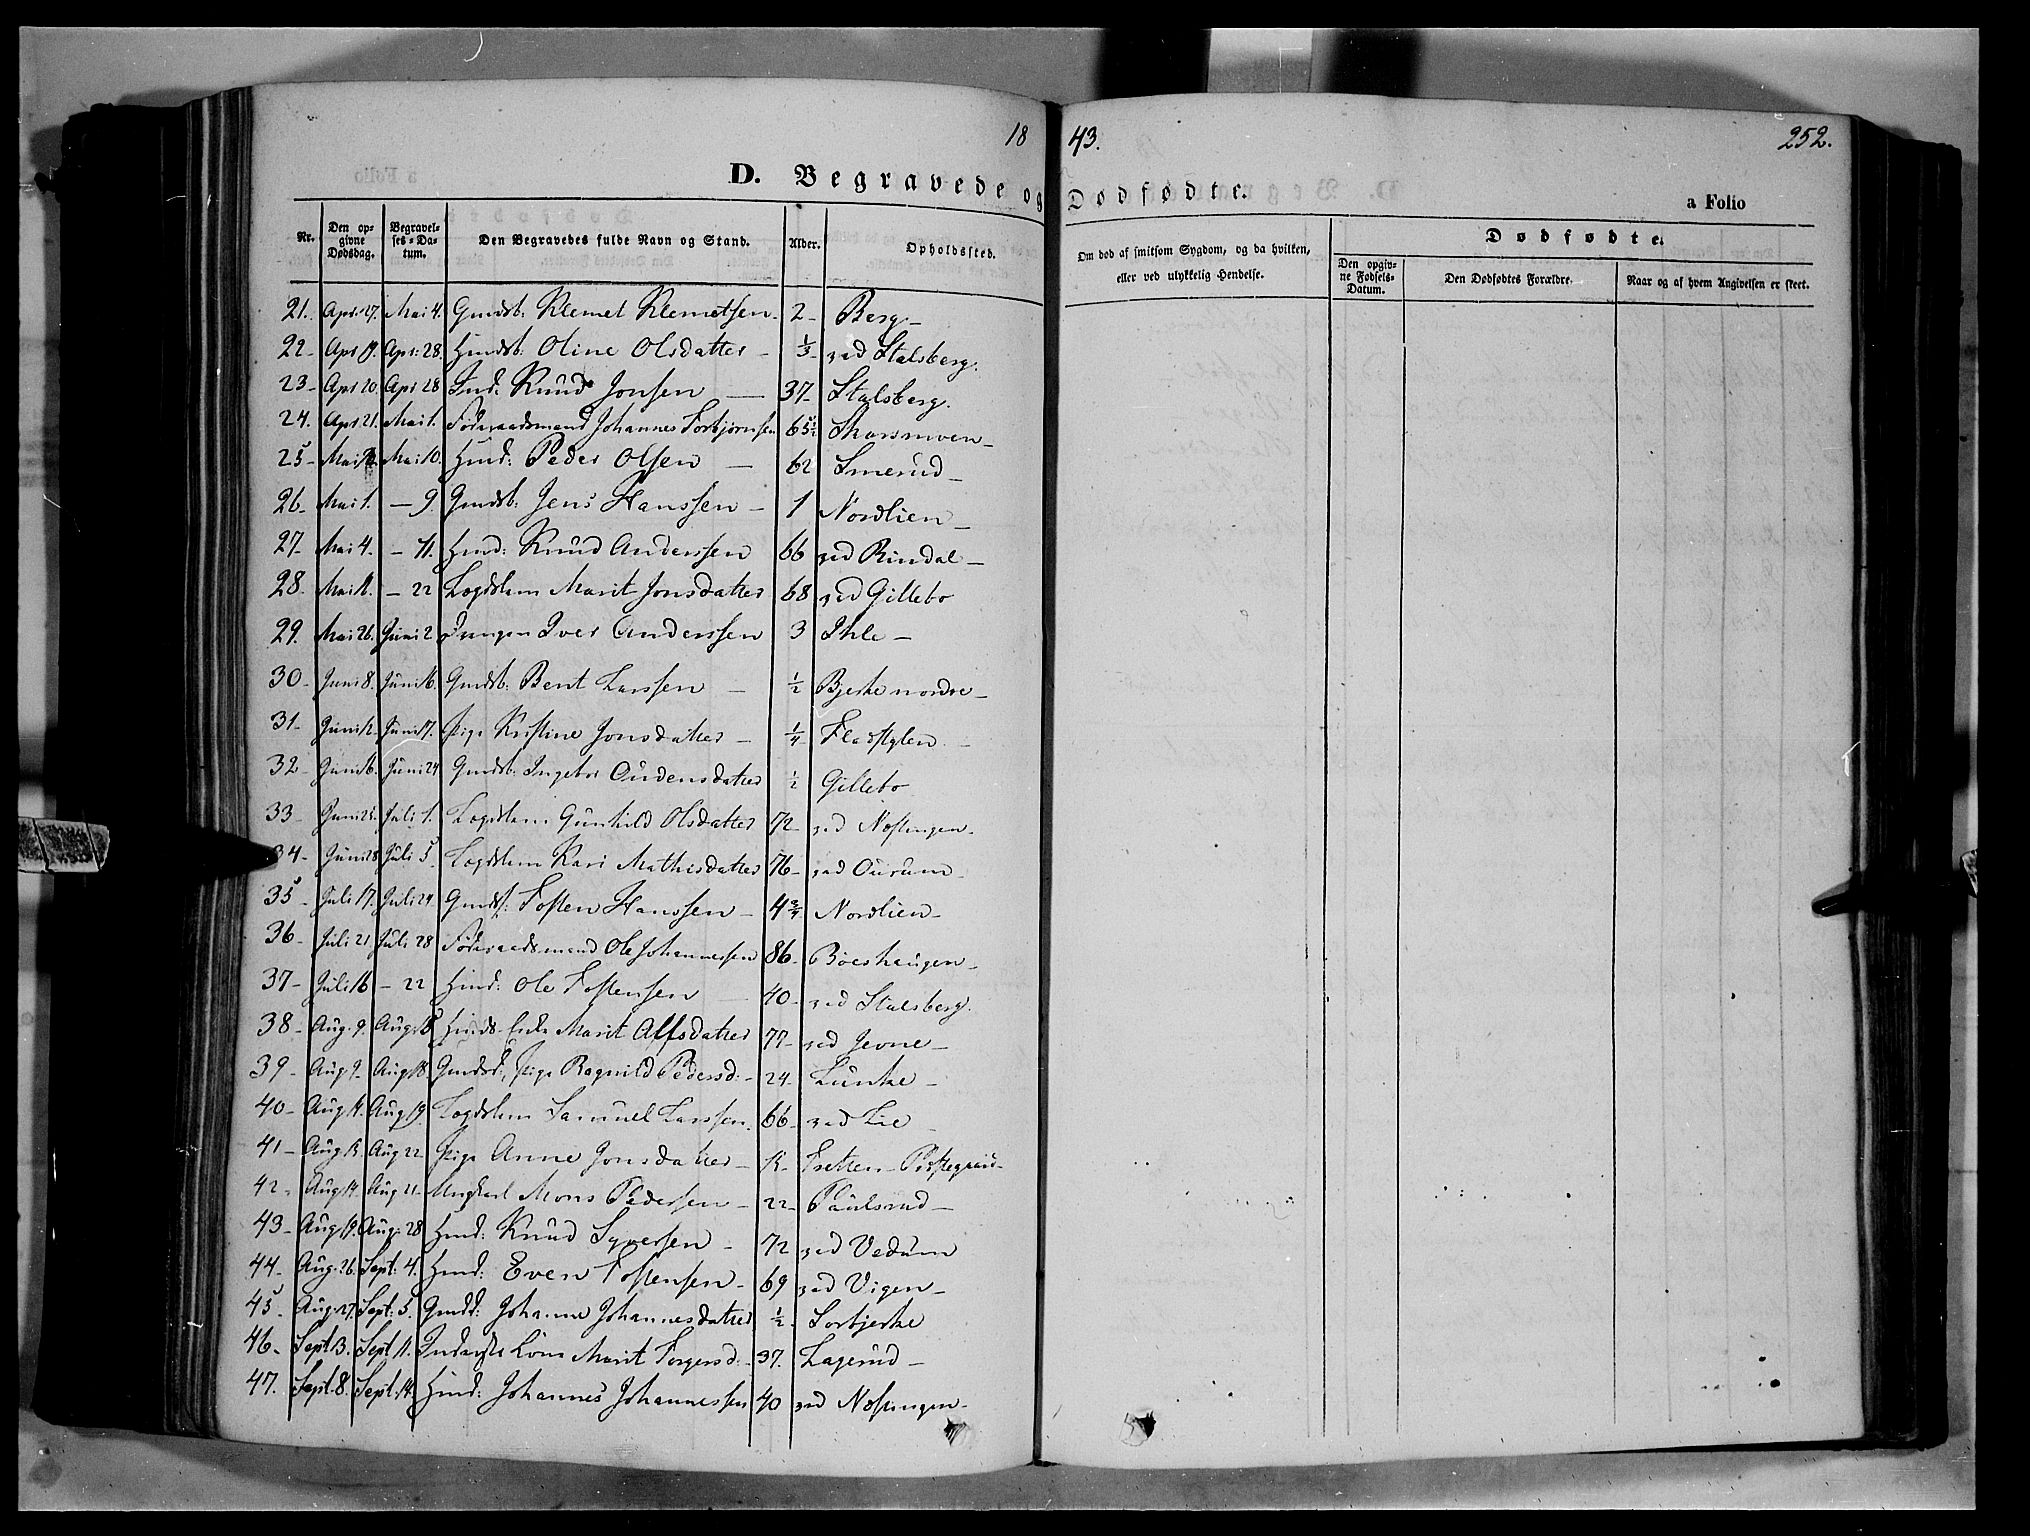 18 43. 252.
D. Begravede og Dødfødte. a Folio
Nr. Den opgivne Dødsdag. Begravelses-Datum. Den Begravedes fulde Navn og Stand. Alder. Opholdssted. Om død af smitsom Sygdom, og da hvilken, eller ved ulykkelig Hendelse. Dødfødte. Den opgivne Fødsels-Datum. Den Dødfødtes Forældre. Naar og af hvem Angivelsen er skeet.
21. Apr. 27. Mai 4. Gmdsb: Klemet Klemetsen 2 Berg
22 Apr 19. Apr: 28. Hmdsb: Oline Olsdatter 1/3 ved Stalsberg.
23 Apr 20. Apr 28 Ind: Knud Jonsen 37 Stalsberg.
24. Apr 21. Mai 1. Føderaadsmand Johannes Torbjørnsen 65 1/2
25 Mai Mai 10. Hmd: Peder Olsen 62 Smerud
26. Mai 1. – 9 Gmdsb: Jens Hanssen 1 Nordlien
27. Mai 4. – 11. Hmd: Knud Anderssen 66 ved Rindal
28. Mai 11. – 22 Lægdslem Marit Jonsdatter 68 ved Gillebo
29. Mai 26. Juni 2 Drengen Iver Anderssen 3 Ihle
30 Juni 8. Juni 16. Gmdsb: Bent Larssen 1/2 Bjerke nordre
31 Juni 12. Juni 17. Pige Kristine Jonsdatter 1/4
32 Juni 16. Juni 24 Gmdsb: Ingebor Audensdatter 1/2 Gillebo
33 Juni 25. Juli 1. Lægdslem Gunhild Olsdatter 72 ved Nøstingen.
34 Juni 28 Juli 5. Lægdslem Kari Mathisdatter 76 ved Ourum
35 Juli 17. Juli 24. Gmds: Tosten Hanssen 4 3/4 Nordlien
36 Juli 21 Juli 28 Føderaadsmand Ole Johannessen 86 Bøeshaugen
37 Juli 16 – 22 Hmd: Ole Tostensen 40 ved Stalsberg.
38 Aug. 9. Aug. 18 Hmds Enke Marit Alfsdatter 77 ved Jevne
39 Aug 9 Aug 18. Gmdsd:, Pige Ragnild Pedersd: 24. Lunke
40 Aug 14. Aug 19. Lægdslem Samuel Larssen. 66 ved Lie
41 Aug 15. Aug 22 Pige Anne Jonsdatter Tretten
42 Aug 14. Aug 21 Ungkarl Mons Pedersen 22 Paulsrud
43 Aug 19. Aug. 28 Hmd: Knud Syversen 72 ved Vedum
44 Aug. 26. Sept: 4. Hmd: Even Tostensen 69 ved Vigen
45 Aug. 27. Sept: 5. Gmdd: Johanne Johannesdatter 1/2 Sorbjerke
46 Sept 3. Sept 11. Marit Torgersd: 37. Lagerud
47. Sept. 8. Sept. 14. Hmd: Johannes Johannessen 40 ved Nøstingen